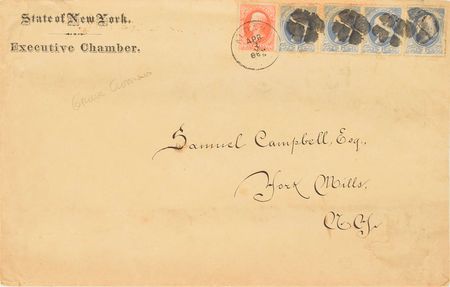 State of New York.
Executive Chamber.
APR
Samuel Campbell, Esq.,
York Mills,
N.Y.